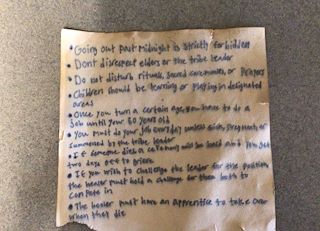 • Going out past midnight is strictly forbidden
• Dont disrespect elders or the tribe leader
• Do not disturb rituals, sacred ceremonies, or Prayers
• Children should be learning or playing in designated
areas
• Once you turn a certain age, you have to do a
Job until your 60 years old
• You must do your job everyday unless sick, pregnant, or
summoned by the tribe leader
• If someone dies a ceremony will be held and you get
two days off to grieve
• If you wish to challenge the leader for the position,
the healer must hold a challenge for them both to
compete in
• The healer must have an apprentice to take over
when they die